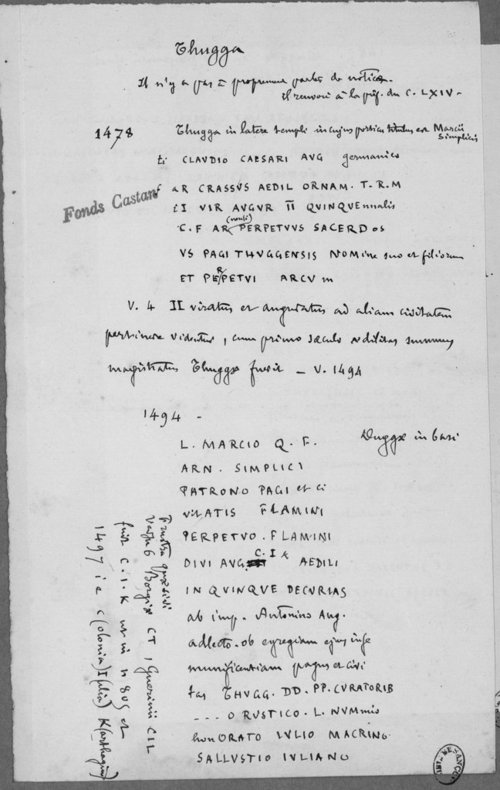 Thugga
Il n'y a pas à proprement parler de notice.
Il renvoie à la préf. du C. LXIV -
1478 Thugga in latere templi in cujus portico titulus est Marcii Simplicis
ti CLAUDIO CAESARI AUG germanico
Fonds Castan
AR CRASSUS AEDIL ORNAM. T. R. M
II VIR AUGUR II QUINQUENnalis
C. F AR PERPETUUS SACERDos
US PAGI THUGGENSIS NOMine suo et filiorum
ET PERPETUI ARCUm
V. 4 II viratus et auguratus ad aliam civitatem
pertinere videntur, cum primo sæculo ædilitas summus
magistratus Thuggæ fuerit - V. 1494
1494 -
Duggæ in basi
L. MARCIO Q. F.
ARN. SIMPLICI
PATRONO PAGI et ci
vitATIS FLAMINI
PERPETUO. FLAMINI
DIVI AUG C. I K AEDILI
IN QUINQUE DECURIAS
ab imp. Antonino Aug.
adlecto. ob egregiam ejus in se
munificentiam pagus et civi
tas THUGG. DD. PP. CURATORIB
... O RUSTICO. L. NUMmio
honORATO IULIO MACRINO
SALLUSTIO IULIANO
Frustra quæsivi
versu 6 Borgiæ CT, Guerinii CIL
fuit C. I. K ut in n 805 et
1497 i e C(olonia) I(ulia) K(arthagini)